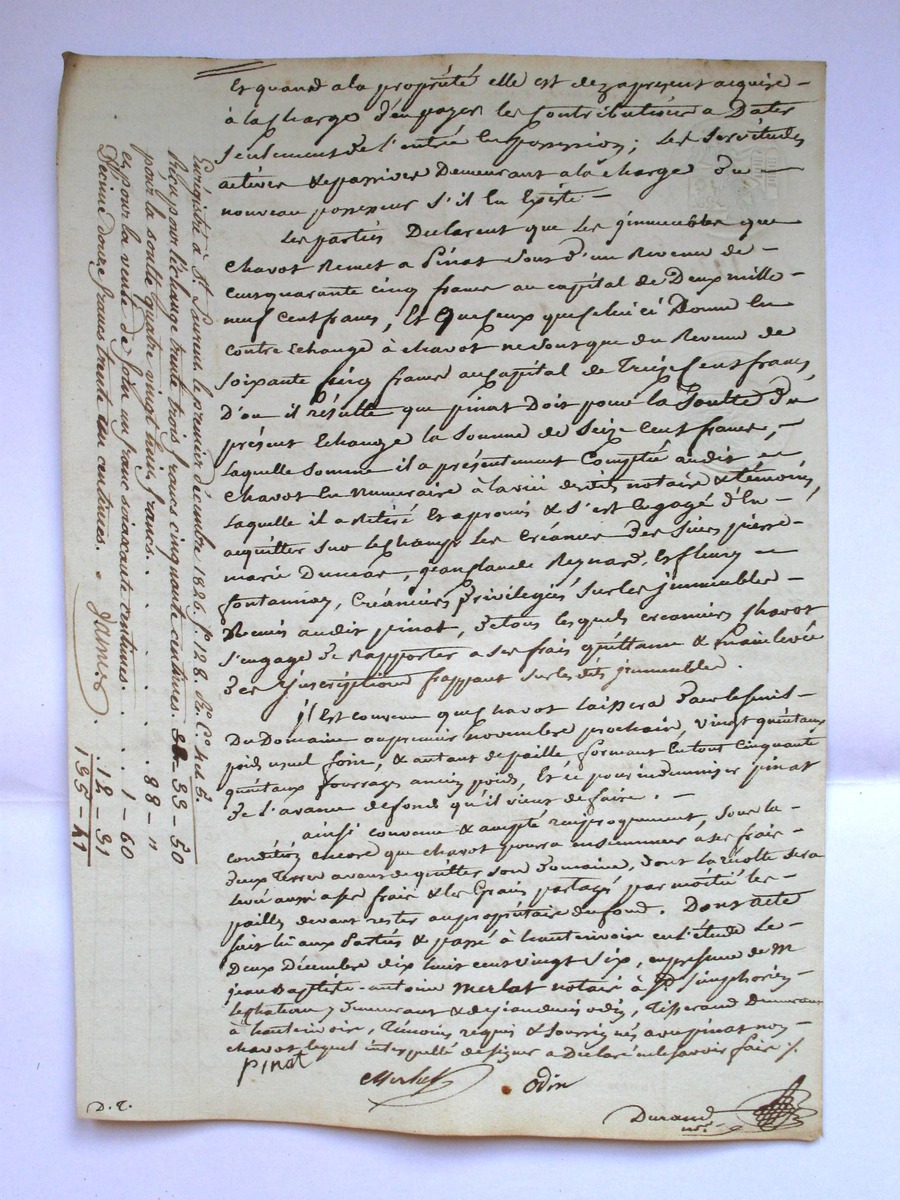 Et quand a la propriété elle est dezapresent acquise -
à la Charge d'en payer les Contributions a Dater
Seulement de l'entrée en possession; Les Servitudes
actives & passives Demeurant a la Charge du -
nouveau possesseur s'il En Existe -
Les parties Declarent que les jmmeubles que
Chavot Remet a Pinat sont d'un Revenu de -
Cent quarante cinq francs au capital de Deux mille -
neuf Cent francs, Et que ceux que celui ci Donne En
contre Echange à chavot ne sont que du Revenu de
soixante cinq francs au capital de Treize Cent francs,
D'ou il résulte que pinat Doit pour la Soulte du
présent Echange la Somme de Seize Cent francs, -
Laquelle somme il a présentement Compté audit -
Chavot En numeraire à la vue desdits notaire & témoins,
Laquelle il a Retiré Et a promis & s'est Engagé d'En -
acquitter sur le champ les Créances des Sieurs pierre -
marie Dumas, jean claude Reynard, Et fleury -
fontannay, Créanciers privilegiés sur les jmmeubles -
Remis audit pinat, de tous lesquels creanciers Chavot
s'engage de Rapporter a ses frais quittance & main levée
des jnscriptions frappant sur lesdits jmmeubles.
jl Est convenu que chavot laissera dans le fenil -
Du Domaine au premier novembre prochain, vingt quintaux
poids usuel foin, & autant de paille formant En tout Cinquante
quintaux fourrage ancien poids, Et ce pour indemniser pinat
de l'avance de fond qu'il vient de faire. -
ainsi convenu & accepté reciproquement, sous la -
condition encore que chavot pourra ensemencer a ses frais -
deux Terres avant de quitter son Domaine, dont la récolte sera
levée aussi a ses frais & les Grains partagés par moitié les -
pailles devant rester au propriétaire du fond. Dont acte
fait lu aux Parties & passé à hauterivoire en l'étude Le -
Deux Décembre dix huit cent vingt six, en présence de M
jean Baptiste - antoine Merlat notaire à St Simphorien
le chateau y demeurant & de jean denis odin, Tisserand Demeurant
à hauterivoire, Témoins requis & soussignés avec pinat non -
chavot lequel interpellé de signer a Déclaré ne le savoir faire ./.
pinat
Merlat
odin
Durand
D. T.
Enrégistré à St. Laurent le premier décembre 1826. f.° 128. R.° C.es 4 et 5.
Reçu pour l'échange trente trois francs cinquante centimes. 33 - 50
pour la soulte quatre vingt huit francs. . . . . 88 - "
et pour la vente de foin un franc soixante centimes. . . 1 - 60
Décime douze francs trente un centimes. . James . . 12 - 31
135 - 41